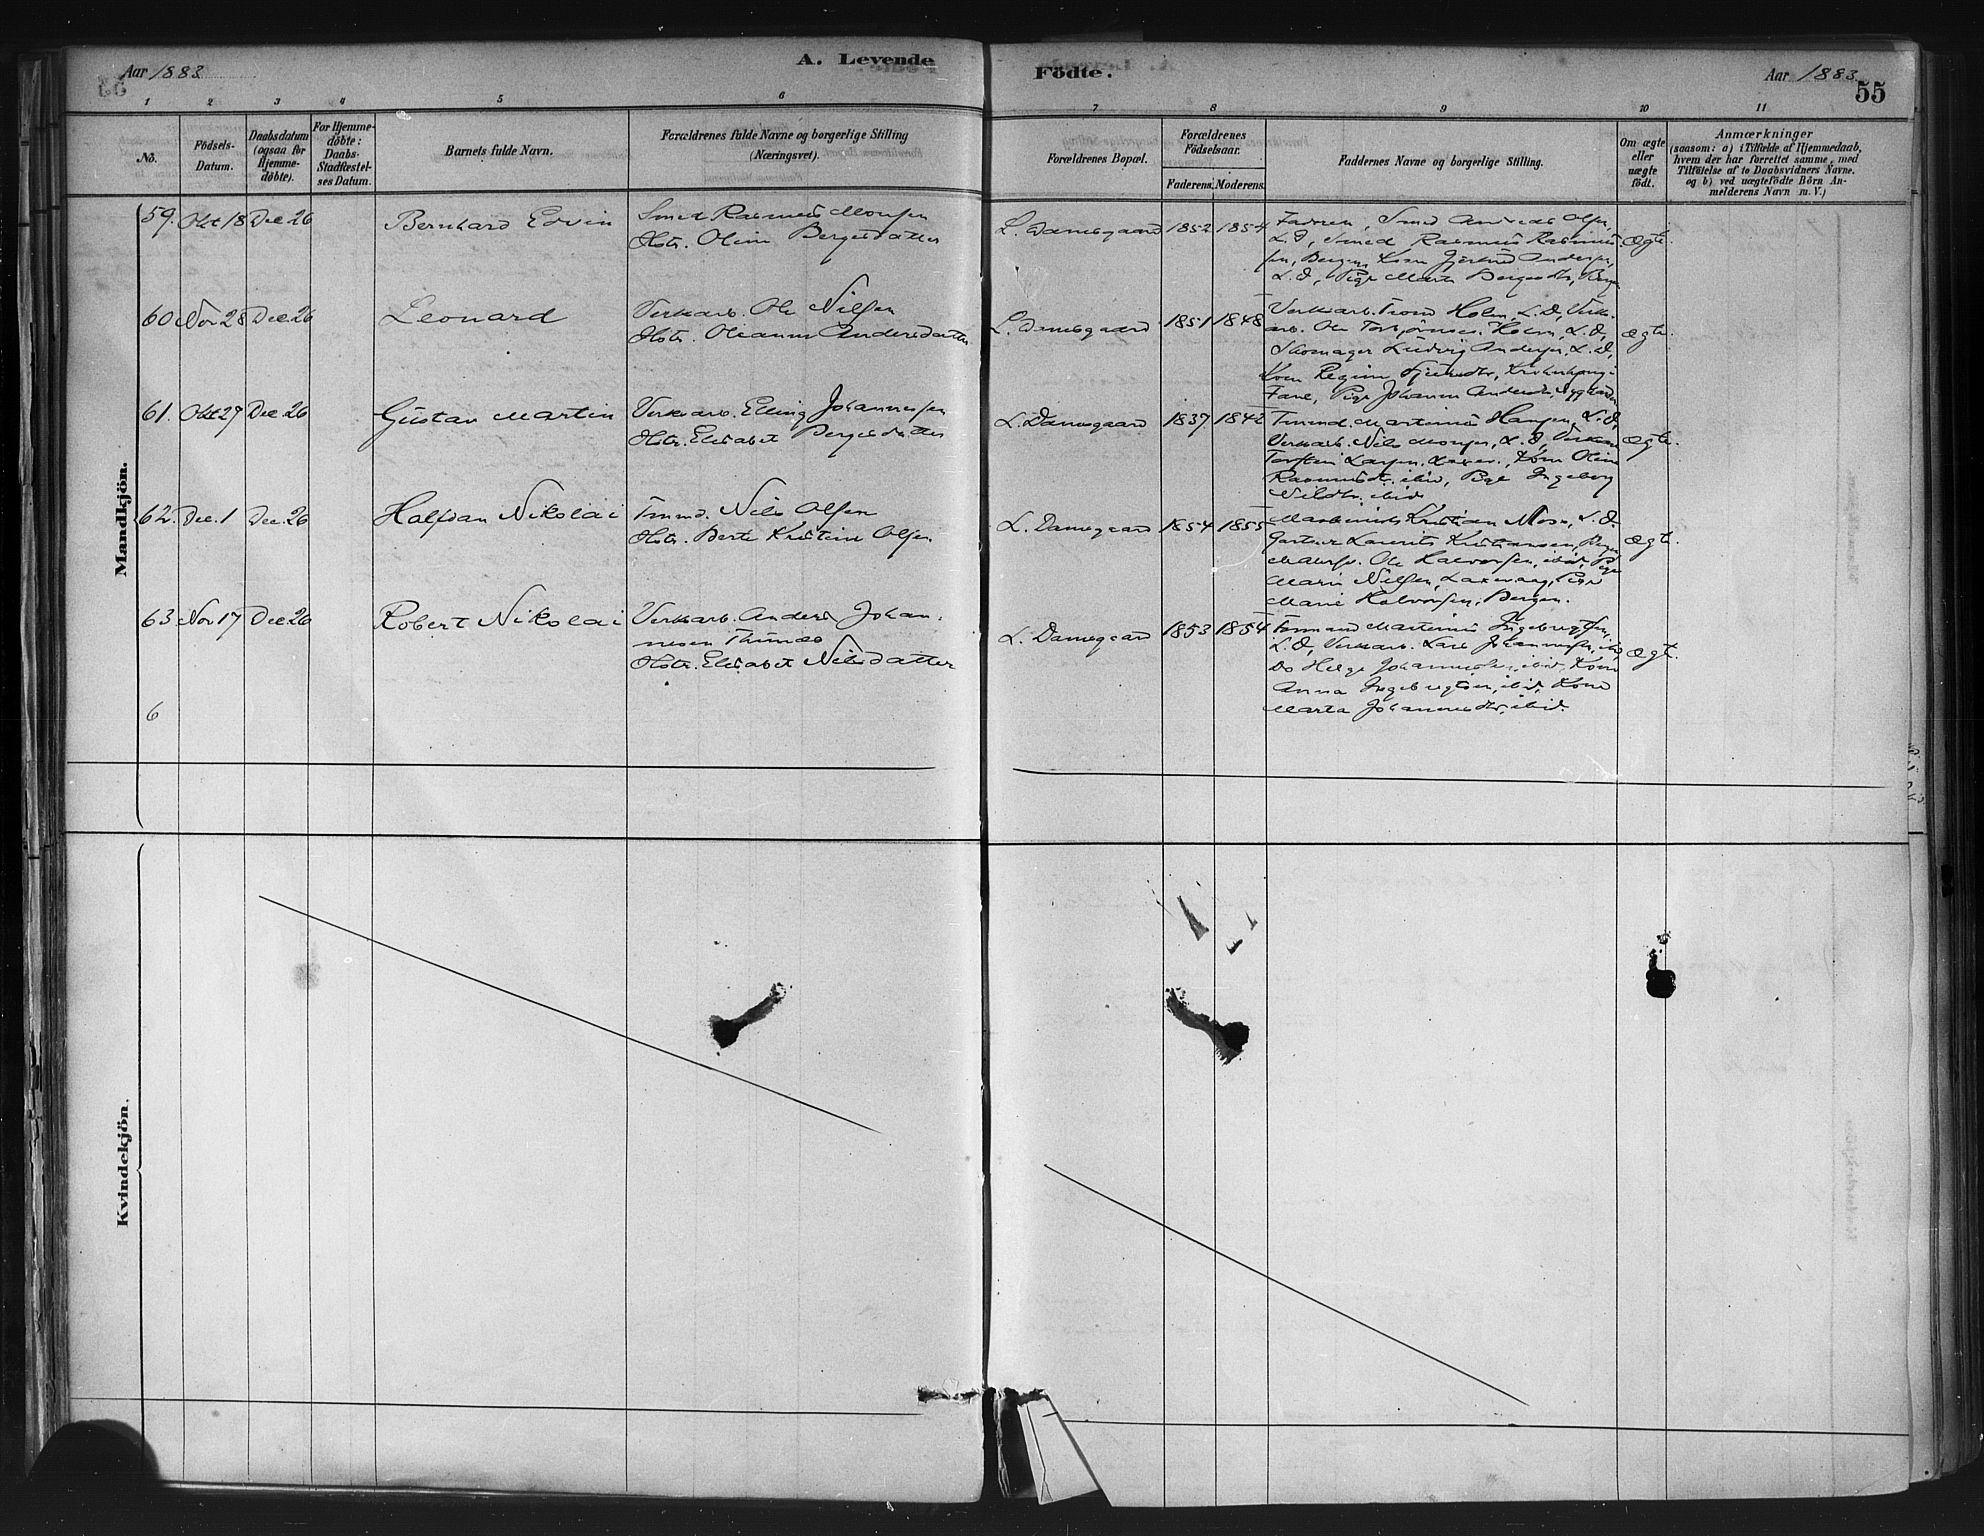 Aar 1883
A. Levende
Födte.
Aar 1883
55
1 2 3 4 5 6 7 8 9 10 11
No.
Födsels-
Datum.
Daabsdatum
(ogsaa for
Hjemme-
döbte).
For Hjemme-
döbte:
Daabs-
Stadfæstel-
ses Datum.
Barnets fulde Navn.
Forældrenes fulde Navne og borgerlige Stilling
(Næringsvei).
Forældrenes Bopæl.
Forældrenes
Födselsaar.
Faderens. Moderens.
Faddernes Navne og borgerlige Stilling.
Om ægte
eller
uægte
födt.
Anmærkninger
(saasom: a) i Tilfælde af Hjemmedaab,
hvem der har forrettet samme, med
Tilföielse af to Daabsvidners Navne.
og b) ved uægtefödte Börn An-
melderens Navn m. V.)
Mandkjön.
59. Okt 18 Dec 26
Bernhard Edvin
Smed Rasmus Monsen
Hstr. Oline Bergesdatter
L. Damsgaard 1852 1854
Faderen, Smed Andreas Olsen,
L.D, Smed Rasmus Rasmus-
sen, Bergen, Kone Gjertrud Andersen,
L.D, Pige Marta Bergesdtr, Bergen
ægte.
60 Nov 28 Dec. 26
Leonard
Verksarb. Ole Nilsen
Hstr. Olianna Andersdatter
L. Damsgaard 1851 1848
Verksarb. Trond Holm, L.D, Verks-
arb. Ole Torbjørnsen Holm, L.D,
Skomager Ludvig Andersen, L.D,
Kone Regine
Fane, Pige Johanne Andersdr.
ægte.
61. Okt 27 Dec 26
Gustav Martin
Verksarb. Elling Johannesen
Hstr. Elisabet Bergesdatter
L. Damsgaard 1837 1842
Tmmd. Martinus Hansen, L.D,
Verksarb. Nils Monsen, L.D, Verksarb
Torstein Larsen, Laxev., Kone Oline
Rasmusdtr. ibid, Pige Ingeborg
Nilsdtr. ibid
ægte.
62. Dec. 1 Dec. 26
Halfdan Nikolai
Tmmd. Nils Olsen
Hstr. Berte Kristine Olsen
L. Damsgaard 1854 1855
Maskinist Kristian Moss, L.D.
Gartner Laurits Kristiansen, Bergen
Ole Halvorsen, ibid, Pige
Marie Nilsen, Laxevaag, Pige
Marie Halvorsen, Bergen.
ægt.
63 Nov 17 Dec 26
Robert Nikolai
Verksarb. Anders Johan-
nesen Thunæs
Hstr. Elisabet Nilsdatter
L. Damsgaard 1853 1854
Tømmrmd Martinus Ingebrigtsen,
L.D, Verksarb. Lars Johannesen, ibid,
Do Helge Johannesen, ibid, Kone
Anna Ingebrigtsen, ibid, Kone
Marta Johannesdtr, ibid.
ægt.
6
Kvindekjön.